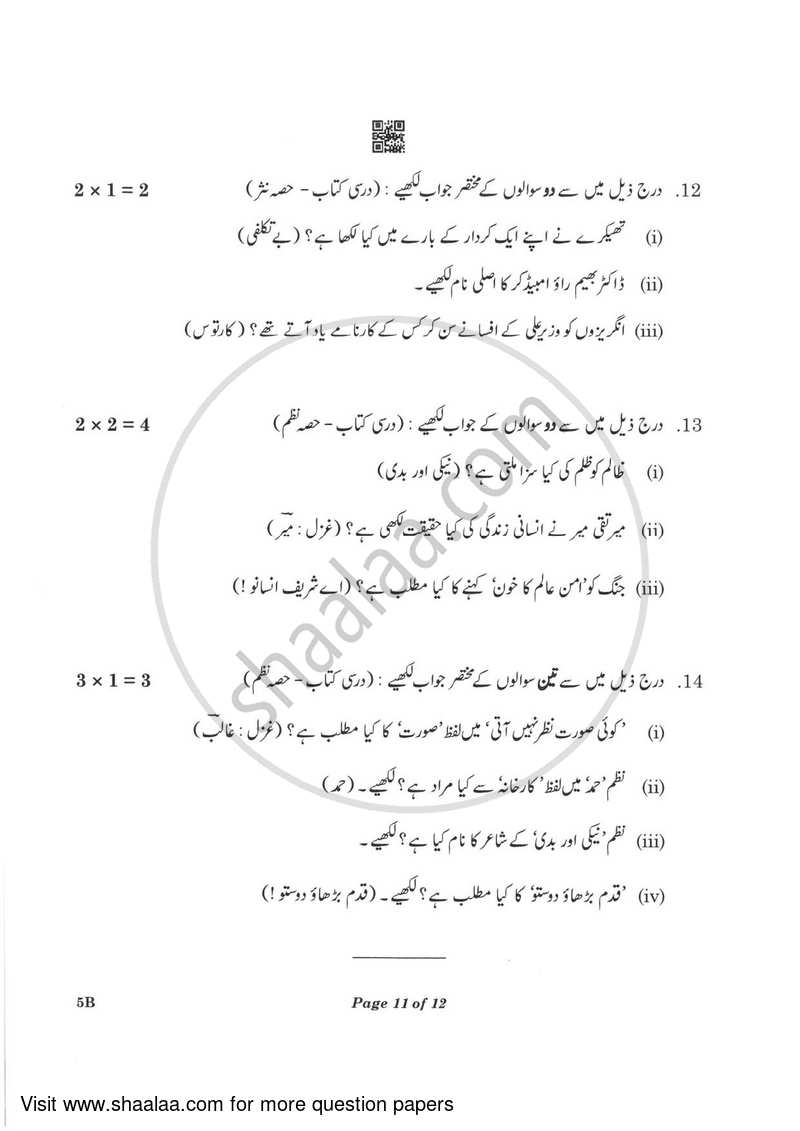 12. درج ذیل میں سے دو سوالوں کے مختصر جواب لکھیے : (درسی کتاب - حصہ نثر) 2 × 1 = 2
(i) تھیکرے نے اپنے ایک کردار کے بارے میں کیا لکھا ہے؟ (بے تکلفی)
(ii) ڈاکٹر بھیم راؤ امبیڈکر کا اصلی نام لکھیے۔
(iii) انگریزوں کو وزیر علی کے افسانے سن کر کس کے کارنامے یاد آتے تھے؟ (کارتوس)
13. درج ذیل میں سے دو سوالوں کے جواب لکھیے : (درسی کتاب - حصہ نظم) 2 × 2 = 4
(i) ظالم کو ظلم کی کیا سزا ملتی ہے؟ (نیکی اور بدی)
(ii) میر تقی میر نے انسانی زندگی کی کیا حقیقت لکھی ہے؟ (غزل : میر)
(iii) جنگ کو 'امن عالم کا خون' کہنے کا کیا مطلب ہے؟ (اے شریف انسانو!)
14. درج ذیل میں سے تین سوالوں کے مختصر جواب لکھیے : (درسی کتاب - حصہ نظم) 3 × 1 = 3
(i) 'کوئی صورت نظر نہیں آتی' میں لفظ 'صورت' کا کیا مطلب ہے؟ (غزل : غالب)
(ii) نظم 'حمد' میں لفظ 'کارخانہ' سے کیا مراد ہے؟ لکھیے۔ (حمد)
(iii) نظم 'نیکی اور بدی' کے شاعر کا نام کیا ہے؟ لکھیے۔
(iv) 'قدم بڑھاؤ دوستو' کا کیا مطلب ہے؟ لکھیے۔ (قدم بڑھاؤ دوستو!)
shaalaa.com
5B Page 11 of 12
Visit www.shaalaa.com for more question papers